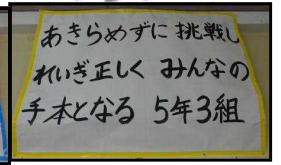 あきらめずに 挑戦し
れいぎ正しく みんなの
手本となる 5年3組